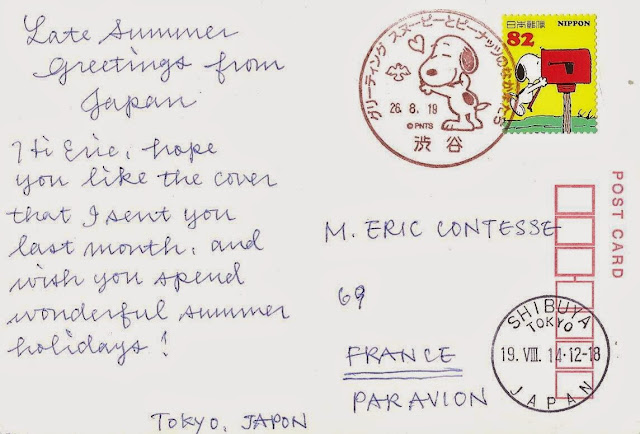 Late Summer
Greetings from
Japan
Hi Eric, hope
you like the cover
that I sent you
last month, and
wish you spend
wonderful summer
holidays!
Tokyo, JAPON
グリーティング スヌーピーとピーナッツのなかまたち
26. 8. 19
©PNTS
渋谷
日本郵便 NIPPON
82
POST CARD
M. ERIC CONTESSE
69
FRANCE
PAR AVION
SHIBUYA
TOKYO
19. VIII. 14・12-18
JAPAN